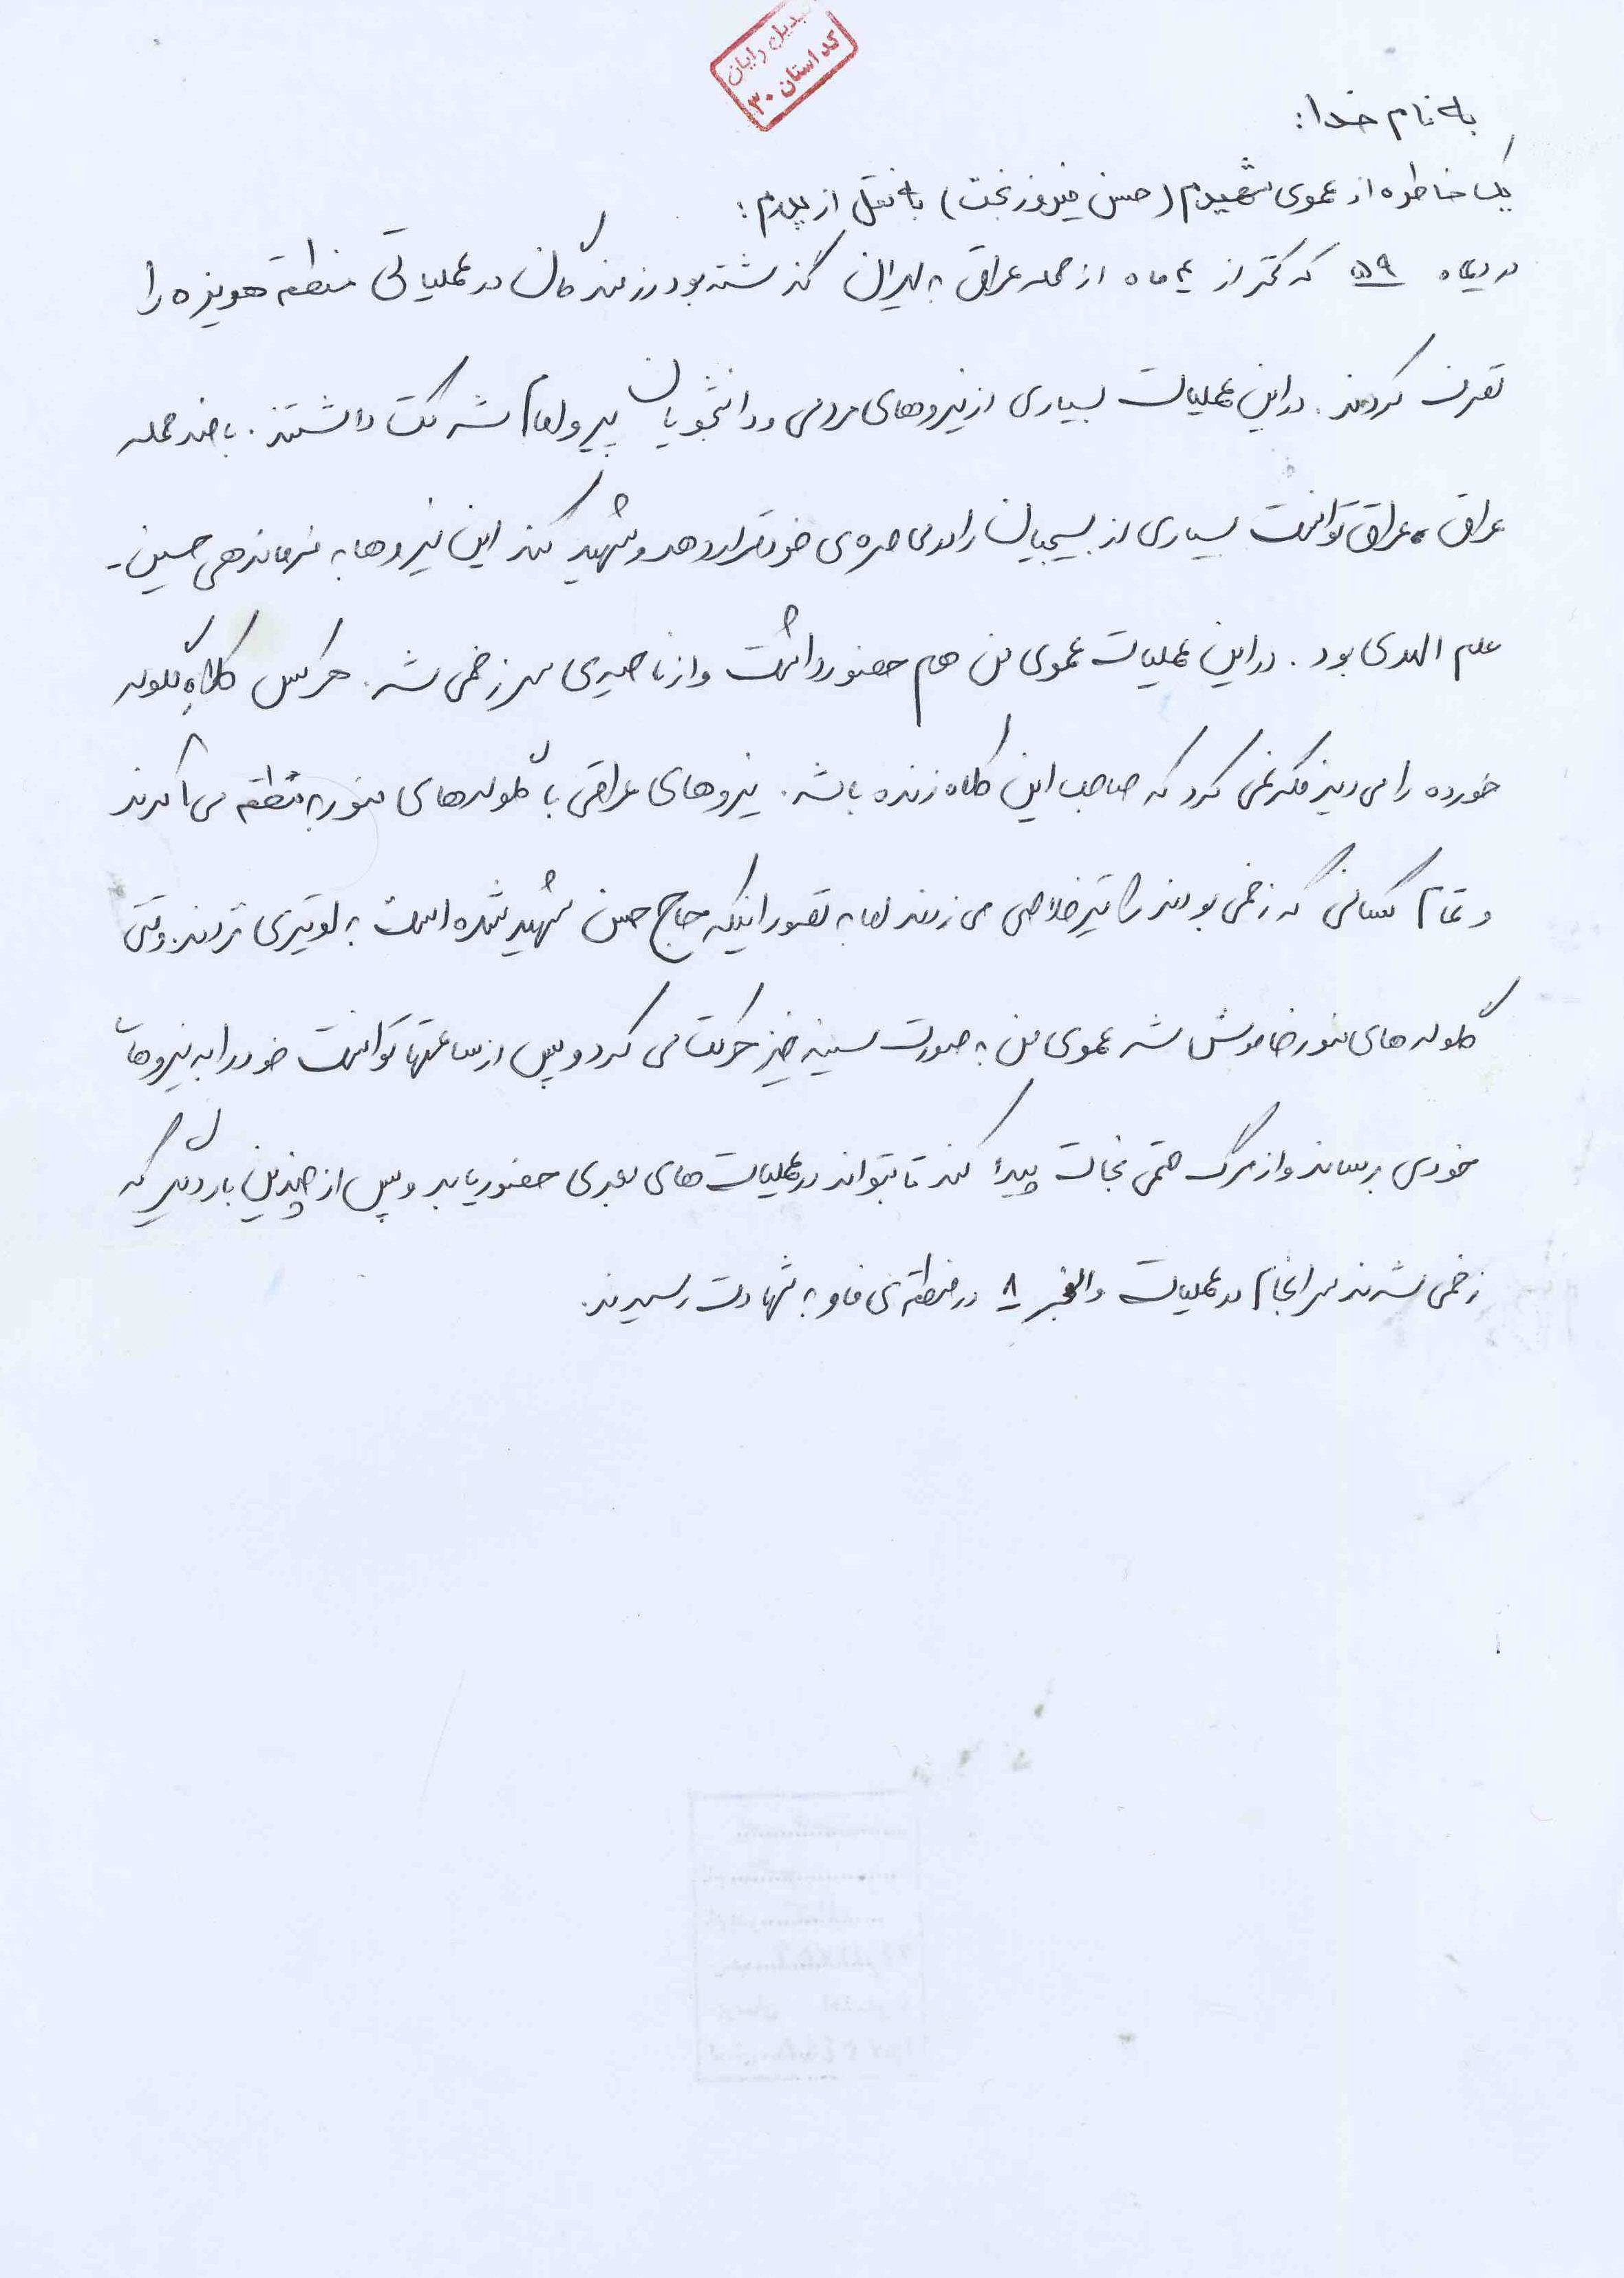 تبدیل رایان
کد استان ۳۰
به نام خدا:
یک خاطره از عموی شهیدم (حسن فیروزبخت) به نقل از پدرم:
در دیماه ۵۹ که کمتر از ۴ ماه از حمله عراق به ایران گذشته بود رزمندگان در عملیاتی منطقه هویزه را
تصرف کردند. در این عملیات بسیاری از نیروهای مردمی و دانشجویان پیرو امام شرکت داشتند. با ضد حمله
عراق، عراق توانست بسیاری از بسیجیان را در محاصره‌ی خود قرار دهد و شهید کند این نیروها به فرماندهی حسین -
علم الهدی بود. در این عملیات عموی من هم حضور داشت و از ناحیه‌ی سر زخمی شد. هرکس کلاه گلوله
خورده را می دید فکر نمی کرد که صاحب این کلاه زنده باشد. نیروهای عراقی با گلوله‌های منور به منطقه می آمدند
و تمام کسانی که زخمی بودند را تیر خلاصی می زدند اما به تصور اینکه حاج حسن شهید شده است به او تیری نزدند. وقتی
گلوله های منور خاموش شد عموی من به صورت سینه خیز حرکت می کرد و پس از ساعتها توانست خود را به نیروهای
خودی برساند و از مرگ حتمی نجات پیدا کند تا بتواند در عملیات های بعدی حضور یابد و پس از چندین بار دیگر که
زخمی شدند سرانجام در عملیات والفجر ۸ در منطقه‌ی فاو به شهادت رسیدند.